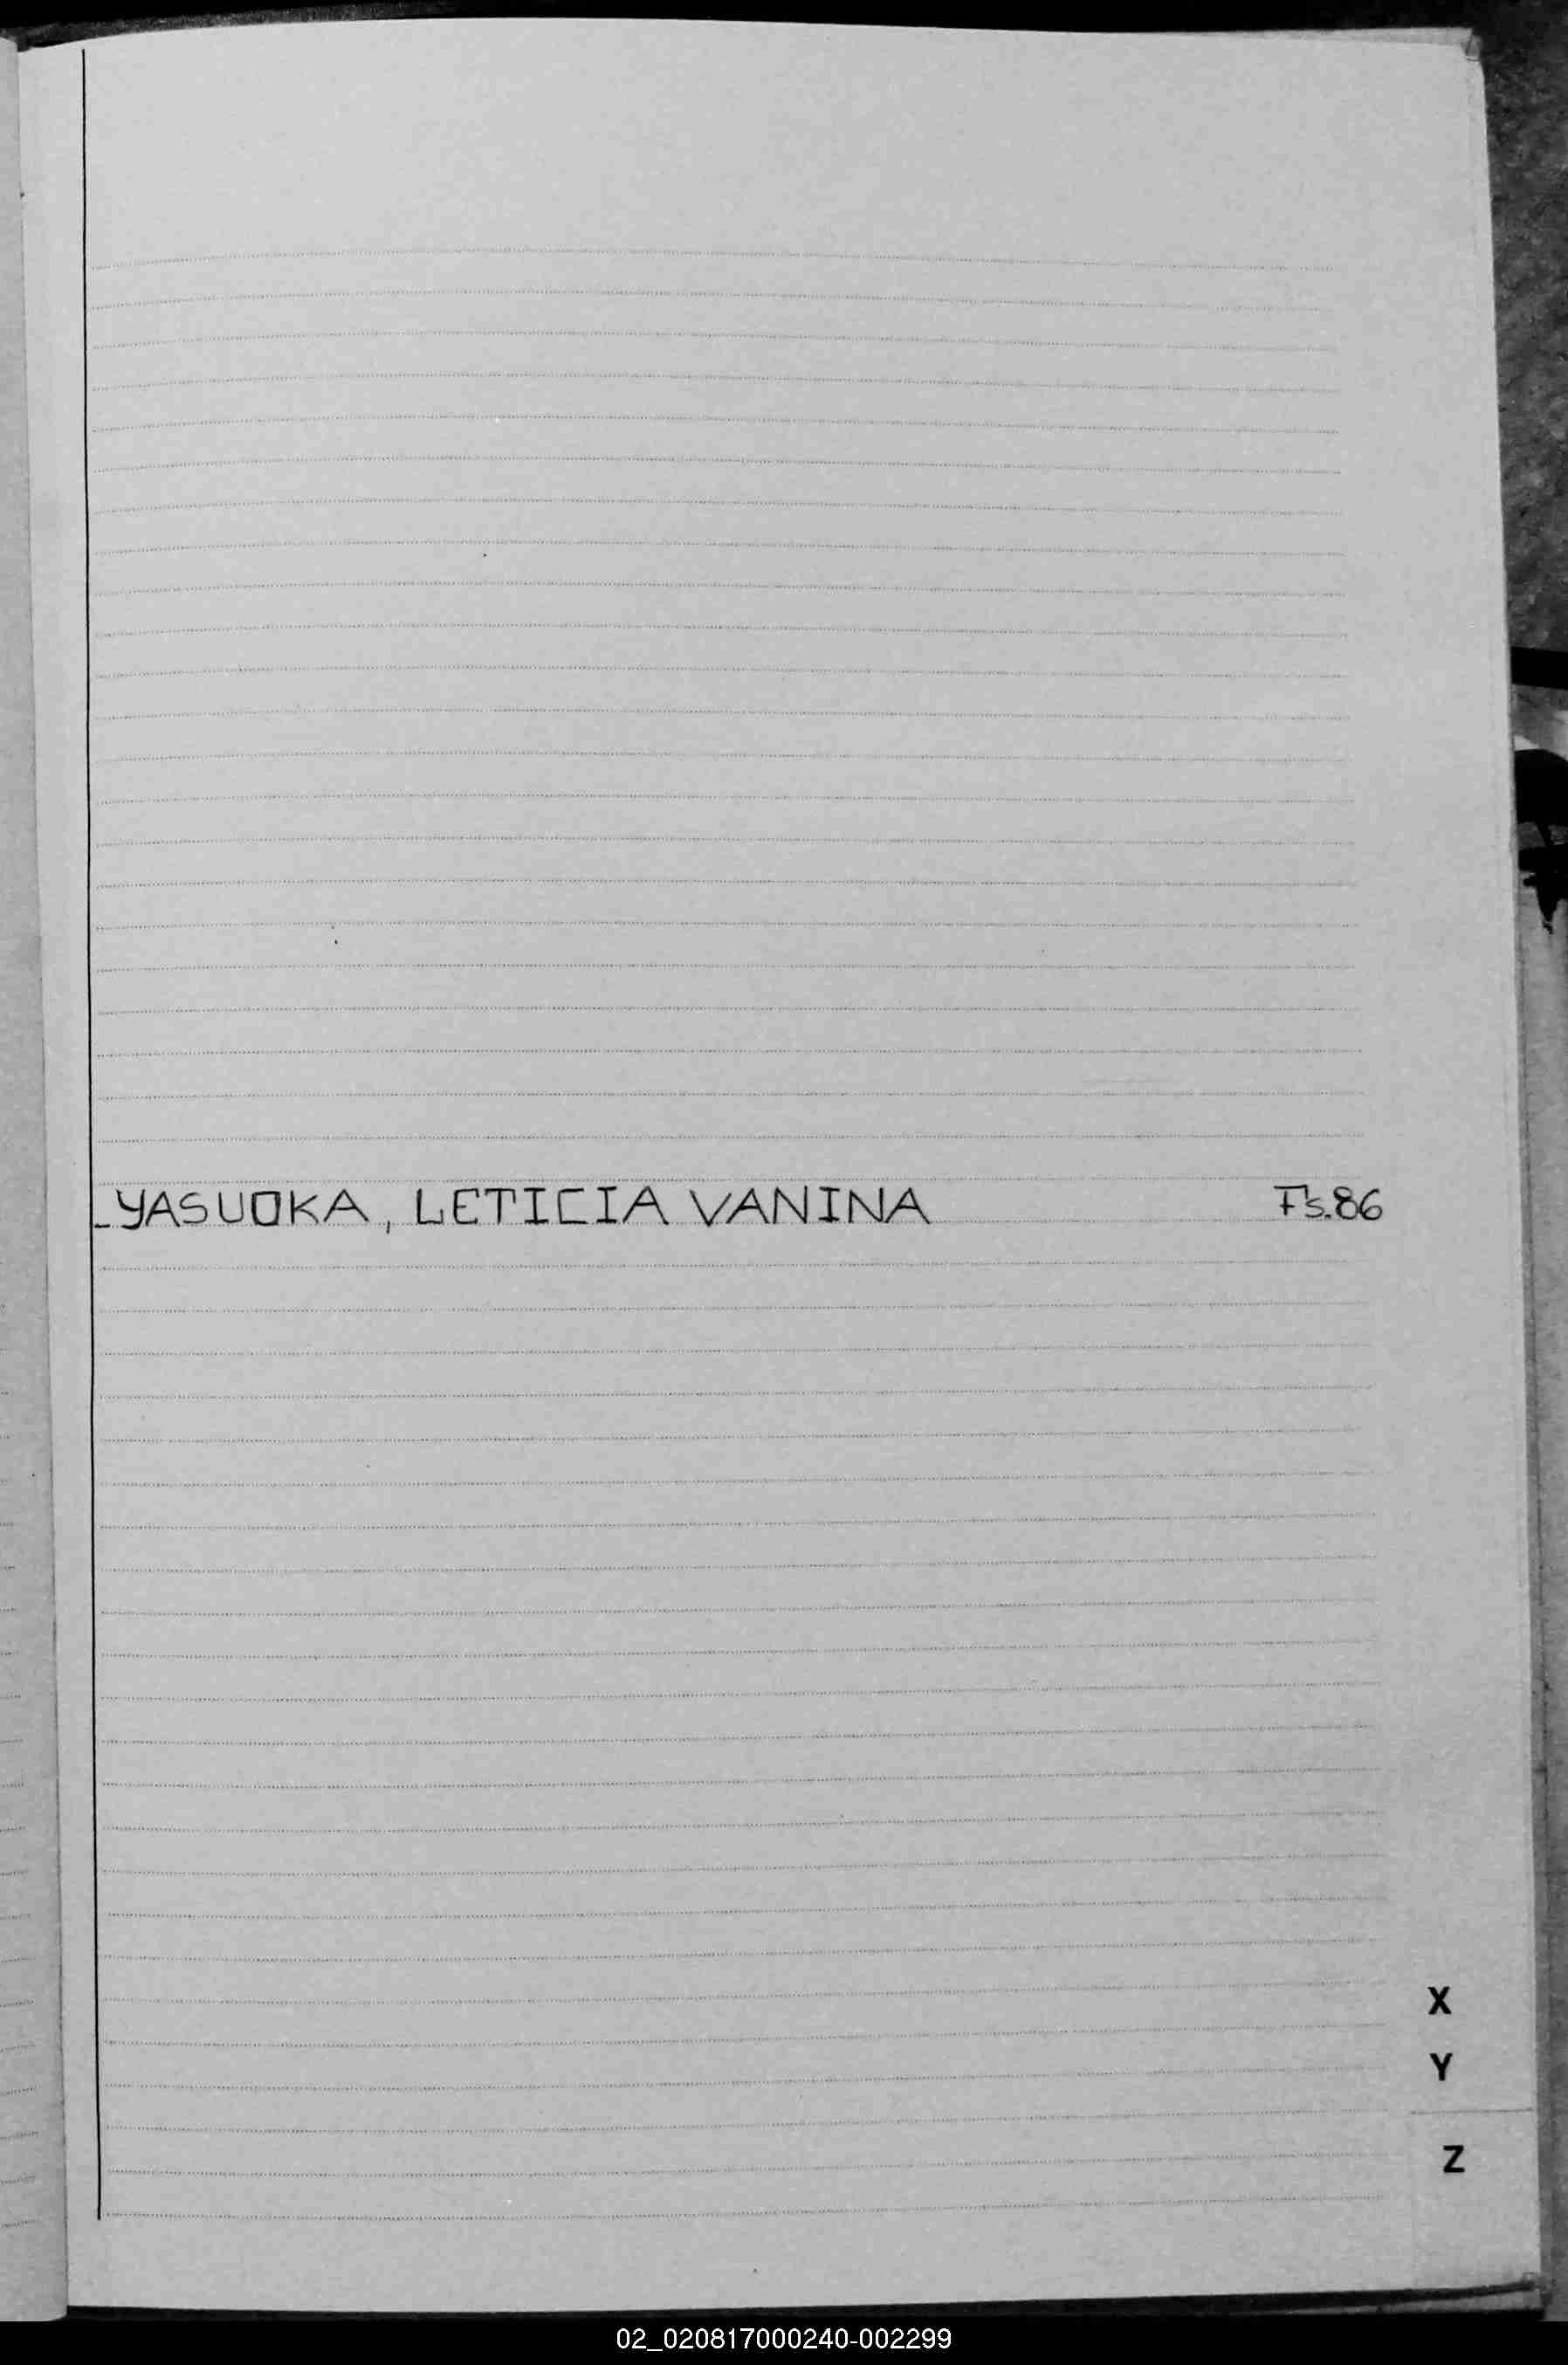 -YASUOKA, LETICIA VANINA Fs.86
X
Y
Z
02_020817000240-002299